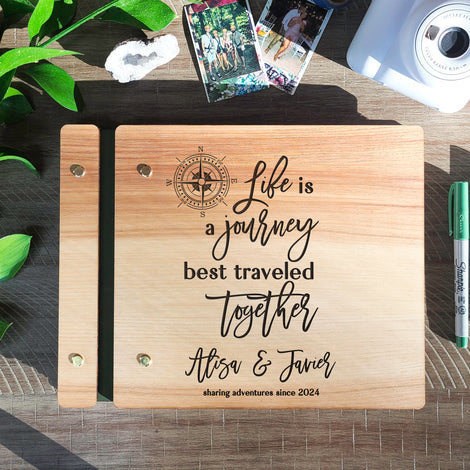 N
W E
S
Life is
a journey
best traveled
together
Alisa & Javier
sharing adventures since 2024
Sharpie